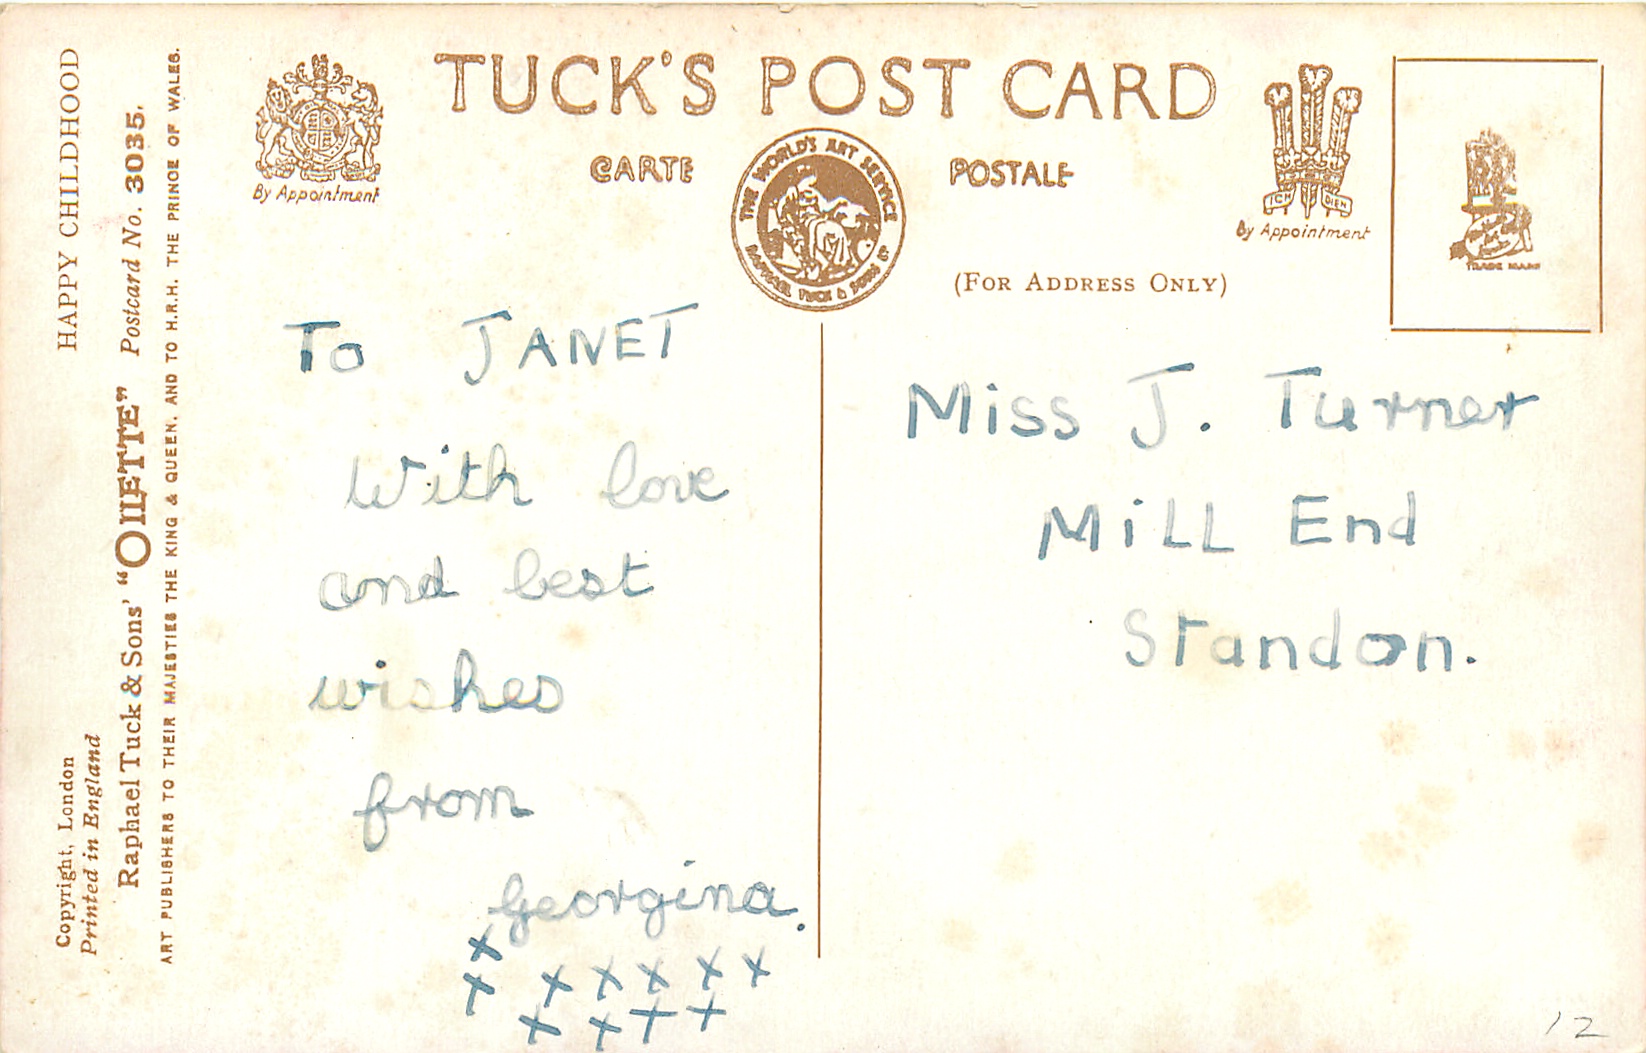 TUCK'S POST CARD
CARTE POSTALE
By Appointment
THE WORLD'S ART SERVICE
RAPHAEL TUCK & SONS LD
ICH DIEN
By Appointment
TRADE MARK
(FOR ADDRESS ONLY)
HAPPY CHILDHOOD
Copyright, London
Printed in England
Raphael Tuck & Sons' "OILETTE" Postcard No. 3035.
ART PUBLISHERS TO THEIR MAJESTIES THE KING & QUEEN, AND TO H.R.H. THE PRINCE OF WALES.
To JANET
With love
and best
wishes
from
Georgina.
x
x x x x x x
x x x x
Miss J. Turner
MiLL End
Standon.
12